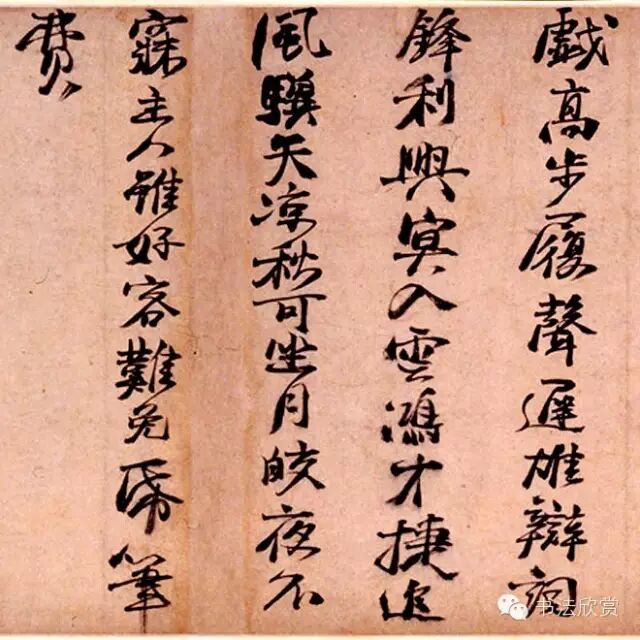 戲高步履聲遲雄辯詞
鋒利興冥入雲鴻才捷追
風驥天涼秋可坐月皎夜不
寐主人雖好客難免帋筆
費
书法欣赏